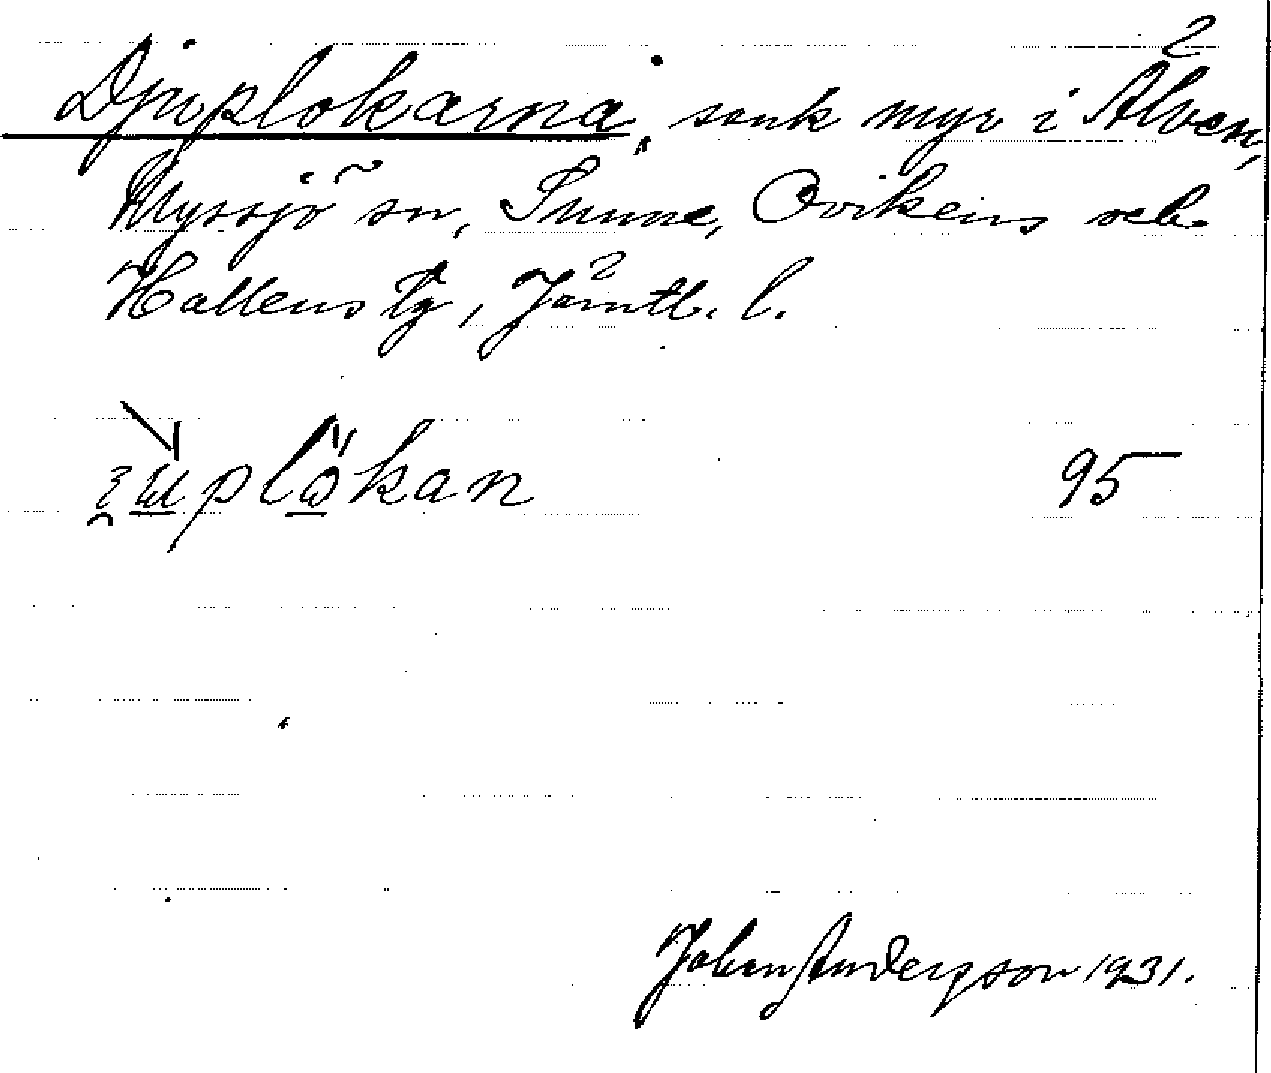 Djuplokarna, sank myr i Älven,
Myssjö sn, Sunne, Ovikens och
Hallens tg, Jämtl. l.
plökan 95
Johan Anderson 1931.